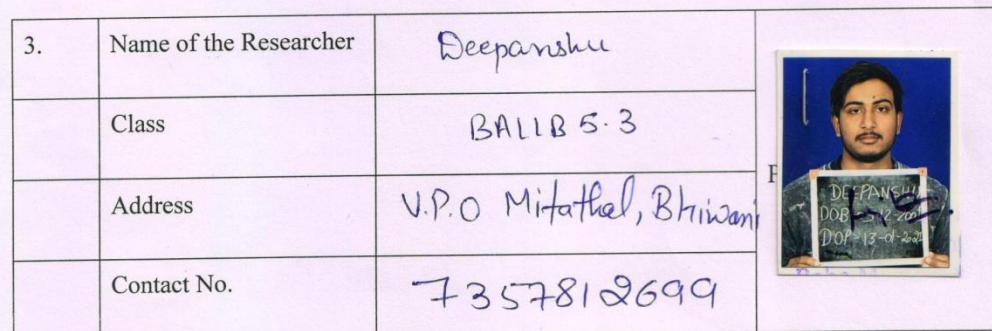 3. Name of the Researcher Deepanshu
Class BALLB 5.3
Address V.P.O Mitathal, Bhiwani
Contact No. 7357812699
DEEPANSHU
DOB
DOP-13-01-